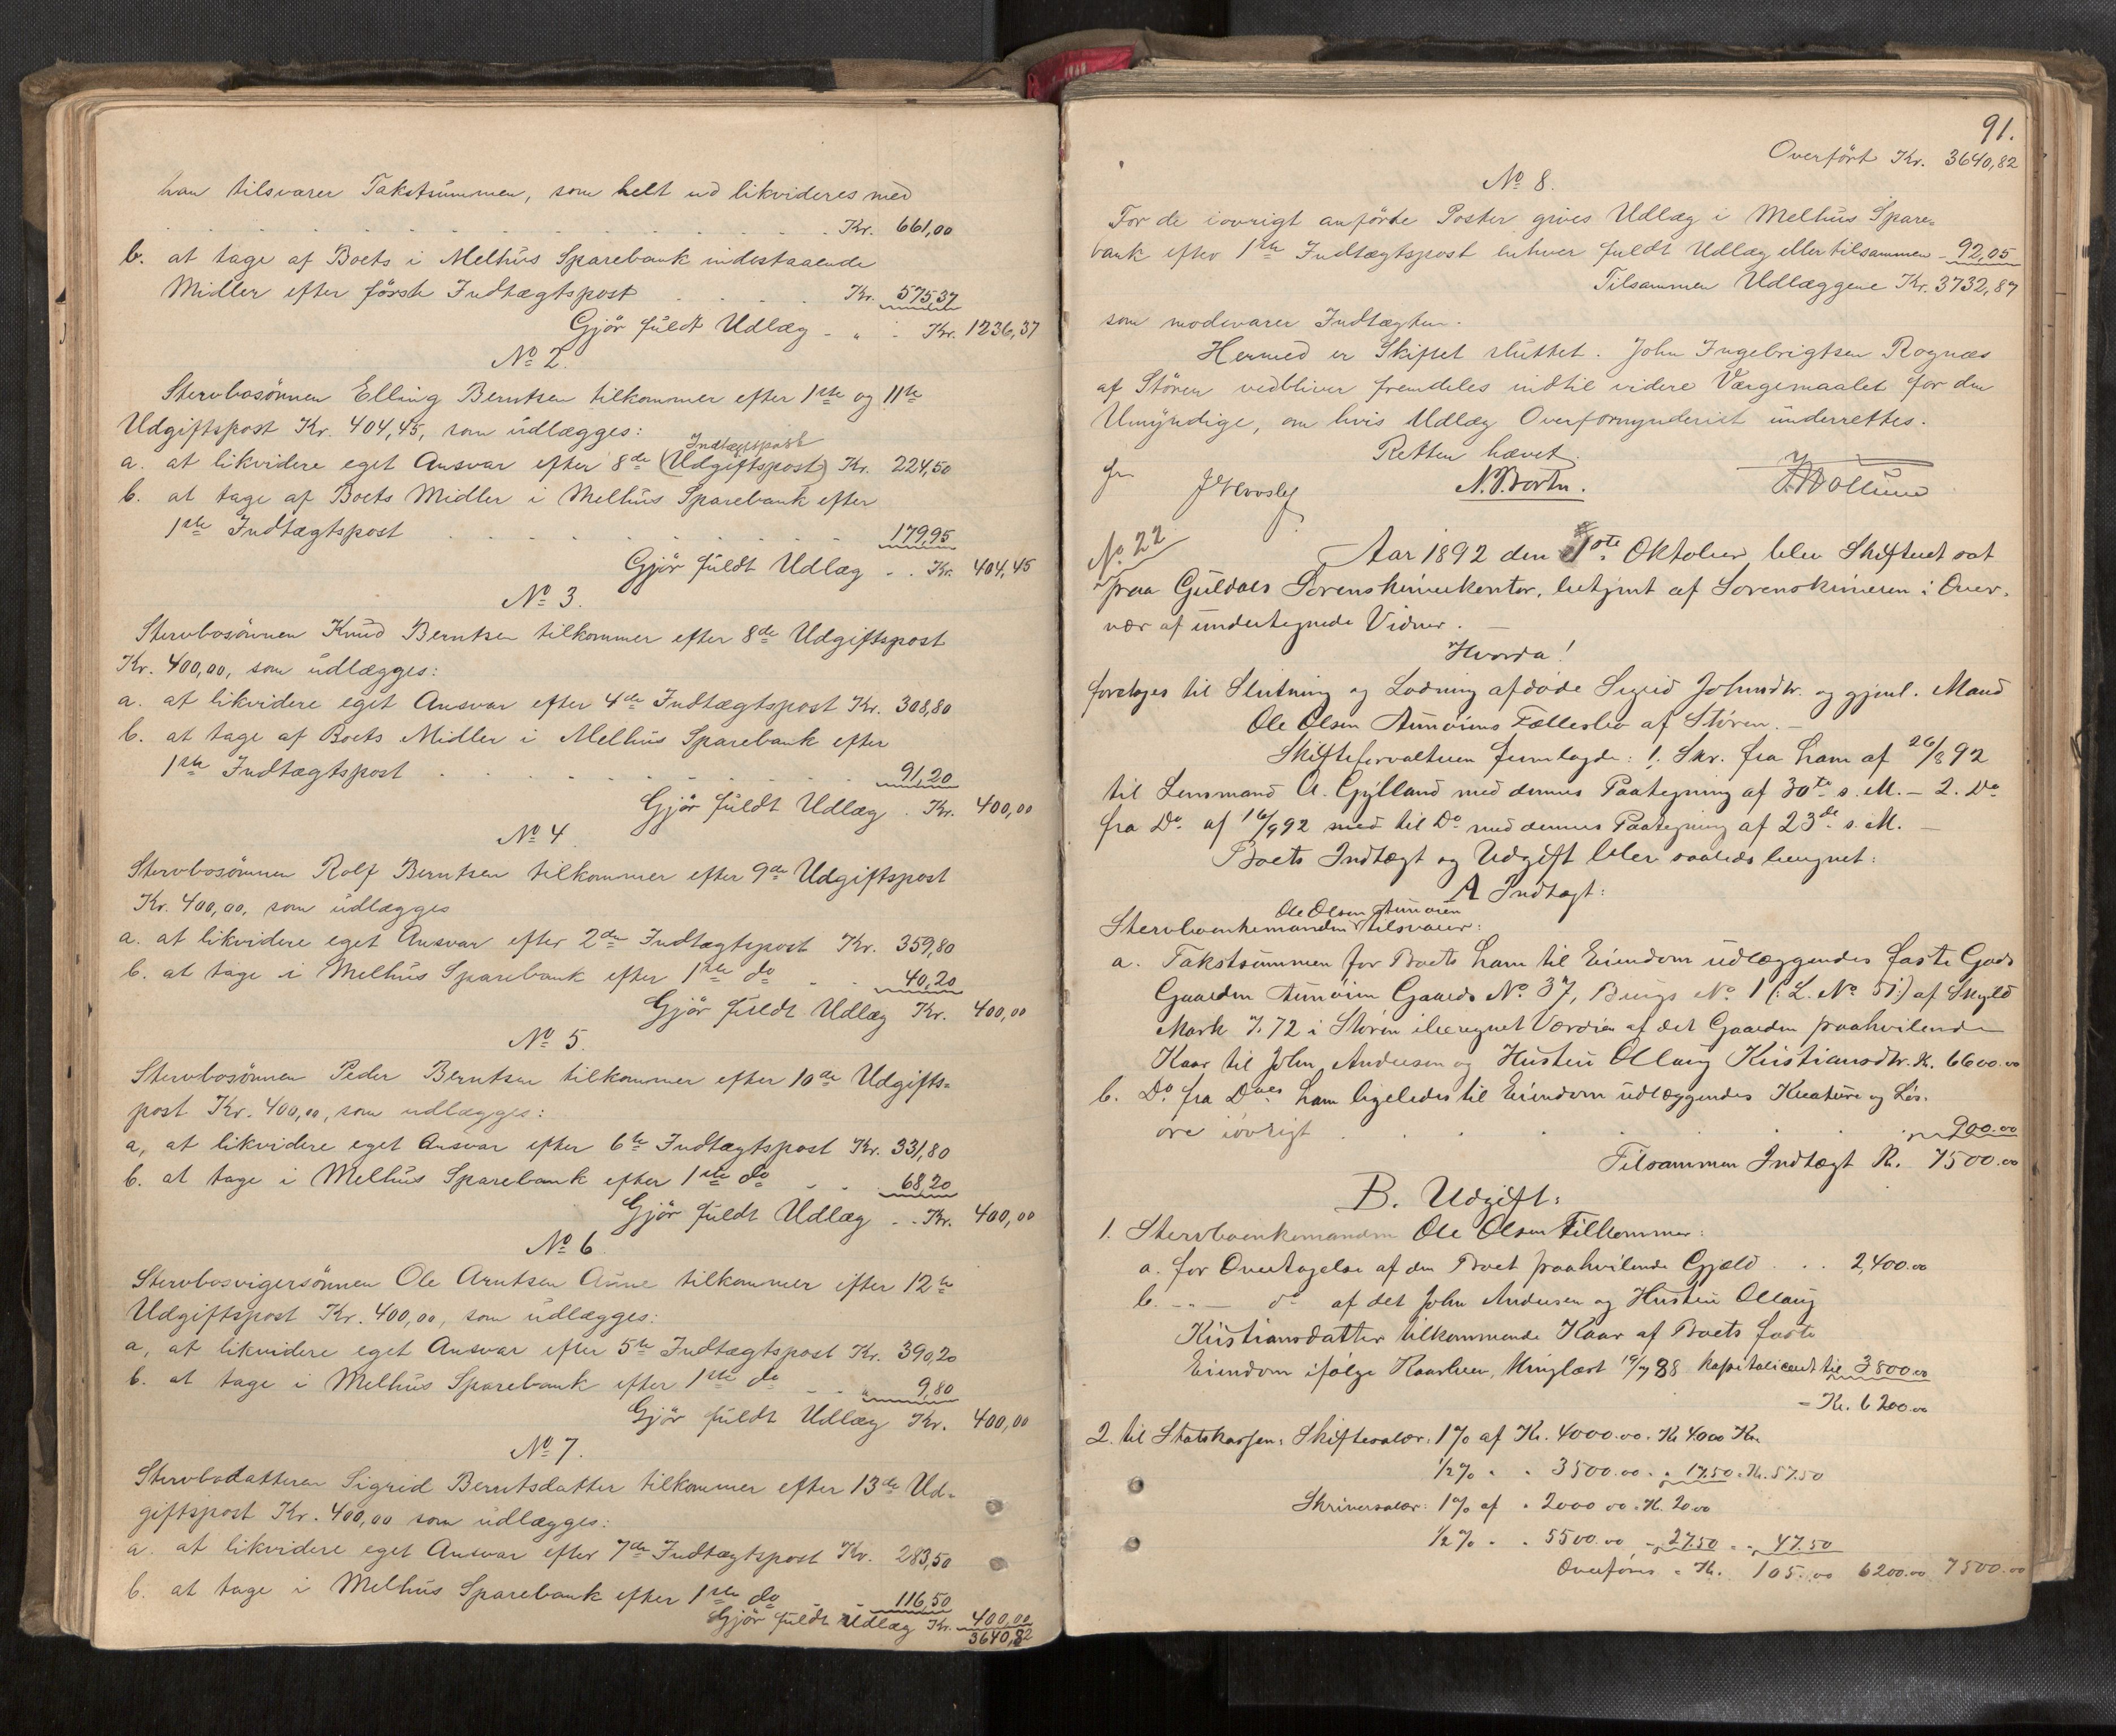 han tilsvarer Takstsummen, som helt ud likvideres med
. . . . . . . . . . . . Kr. 661,00
b. at tage af Boets i Melhus Sparebank indestaaende
Midler efter förste Indtægtspost . . . . Kr. 575,37
Gjör fuldt Udlæg - " - Kr. 1236,37
No 2.
Stervbosönnen Elling Berntsen tilkommer efter 1ste og 11te
Udgiftspost Kr. 404,45, som udlægges:
Indtægtspost
a. at likvidere eget Ansvar efter 8de (Udgiftspost) Kr. 224,50
b. at tage af Boets Midler i Melhus Sparebank efter
1ste Indtægtspost . . . . . . . . 179,95
Gjör fuldt Udlæg . . Kr. 404,45
No 3.
Stervbosönnen Knud Berntsen tilkommer efter 8de Udgiftspost
Kr. 400,00, som udlægges:
a. at likvidere eget Ansvar efter 4de Indtægtspost Kr. 308,80
b. at tage af Boets Midler i Melhus Sparebank efter
1ste Indtægtspost . . . . . . . . 91,20
Gjör fuldt Udlæg . Kr. 400,00
No 4.
Stervbosönnen Rolf Berntsen tilkommer efter 9de Udgiftspost
Kr. 400,00, som udlægges
a. at likvidere eget Ansvar efter 2den Indtægtspost Kr. 359,80
b. at tage i Melhus Sparebank efter 1ste do . . 40,20
Gjör fuldt Udlæg Kr. 400,00
No 5.
Stervbosönnen Peder Berntsen tilkommer efter 10de Udgifts=
post Kr. 400,00, som udlægges:
a, at likvidere eget Ansvar efter 6te Indtægtspost Kr. 331,80
b. at tage i Melhus Sparebank efter 1ste do . . 68,20
Gjör fuldt Udlæg . . Kr. 400,00
No 6.
Stervbosvigersönnen Ole Arntsen Aune tilkommer efter 12te
Udgiftspost Kr. 400,00, som udlægges:
a, at likvidere eget Ansvar efter 5te Indtægtspost Kr. 390,20
b. at tage i Melhus Sparebank efter 1ste do . . " 9,80
Gjör fuldt Udlæg Kr. 400,00
No 7.
Stervbodatteren Sigrid Berntsdatter tilkommer efter 13de Ud-
giftspost Kr. 400,00 som udlægges:
a. at likvidere eget Ansvar efter 7de Indtægtspost Kr. 283,50
b. at tage i Melhus Sparebank efter 1ste do . . 116,50
Gjör fuldt Udlæg Kr. 400,00
3640,82
91.
Overfört Kr. 3640,82
No 8.
For de iövrigt anförte Poster gives Udlæg i Melhus Spare=
bank efter 1ste Indtægtspost enhver fuldt Udlæg eller tilsammen - 92,05
Tilsammen Udlæggene Kr. 3732,87
som modsvarer Indtægten.
Hermed er Skiftet sluttet. John Ingebrigtsen Rognæs
af Stören vedbliver fremdeles indtil videre Værgemaalet for den
Umyndige, om hvis Udlæg Overformynderiet underrettes.
Retten hævet.
No 22
Aar 1892 den 1ste Oktober blev Skifteret sat
paa Guldals Sorenskriverkontor, betjent af Sorenskriveren i Over-
vær af undertegnede Vidner. —
Hvorda!
foretoges til Slutning og Lodning afdöde Sigrid Johnsdtr. og gjenl. Mand
Ole Olsen Aunöiens Fællesbo af Stören. —
Skifteforvalteren fremlagde: 1. Skr. fra ham af 26/8 92
til Lensmand A. Gylland med dennes Paategning af 30te s. M. — 2. Do
fra Do. af 16/9 92 med til Do med dennes Paategning af 23de s. M. —
Boets Indtægt og Udgift blev saaledes beregnet:
A Indtægt:
Ole Olsen Aunöien
Stervboenkemanden tilsvarer:
a. Takstsummen for Boets ham til Eiendom udlæggendes faste Gods
Gaarden Aunöien Gaards No 37, Brugs No 1 (: L. No 51:) af Skyld
Mark 7.72 i Stören iberegnet Værdien af det Gaarden paahvilende
Kaar til John Andersen og Hustru Ollaug Kristiansdtr. Kr. 6600.00
b. Do fra Do ham ligeledes til Eiendom udlæggendes Kreature og Lös-
öre iövrigt . . . . . . . 900.00
Tilsammen Indtægt Kr. 7500.00
B. Udgift:
1. Stervboenkemanden Ole Olsen tilkommer:
a. for Overtagelse af den Boet paahvilende Gjæld . . . 2,400.00
b. -"- do af det John Andersen og Hustru Ollaug
Kristiansdatter tilkommende Kaar af Boets faste
Eiendom ifölge Kaarbrev, thinglæst 19/7 88 kapitaliseret til 3800.00
- Kr. 6200.00
2. til Statskassen: Skiftesalær: 1% af Kr. 4000.00. Kr 40.00
1/2% " " 3500.00 - " 17.50 . Kr. 57.50
Skriversalær: 1% af " 2000.00 . Kr. 20.00
1/2% " " 5500.00 - " 27.50 " - " 47.50
Overföres . Kr. 105.00 6200.00 7500.00